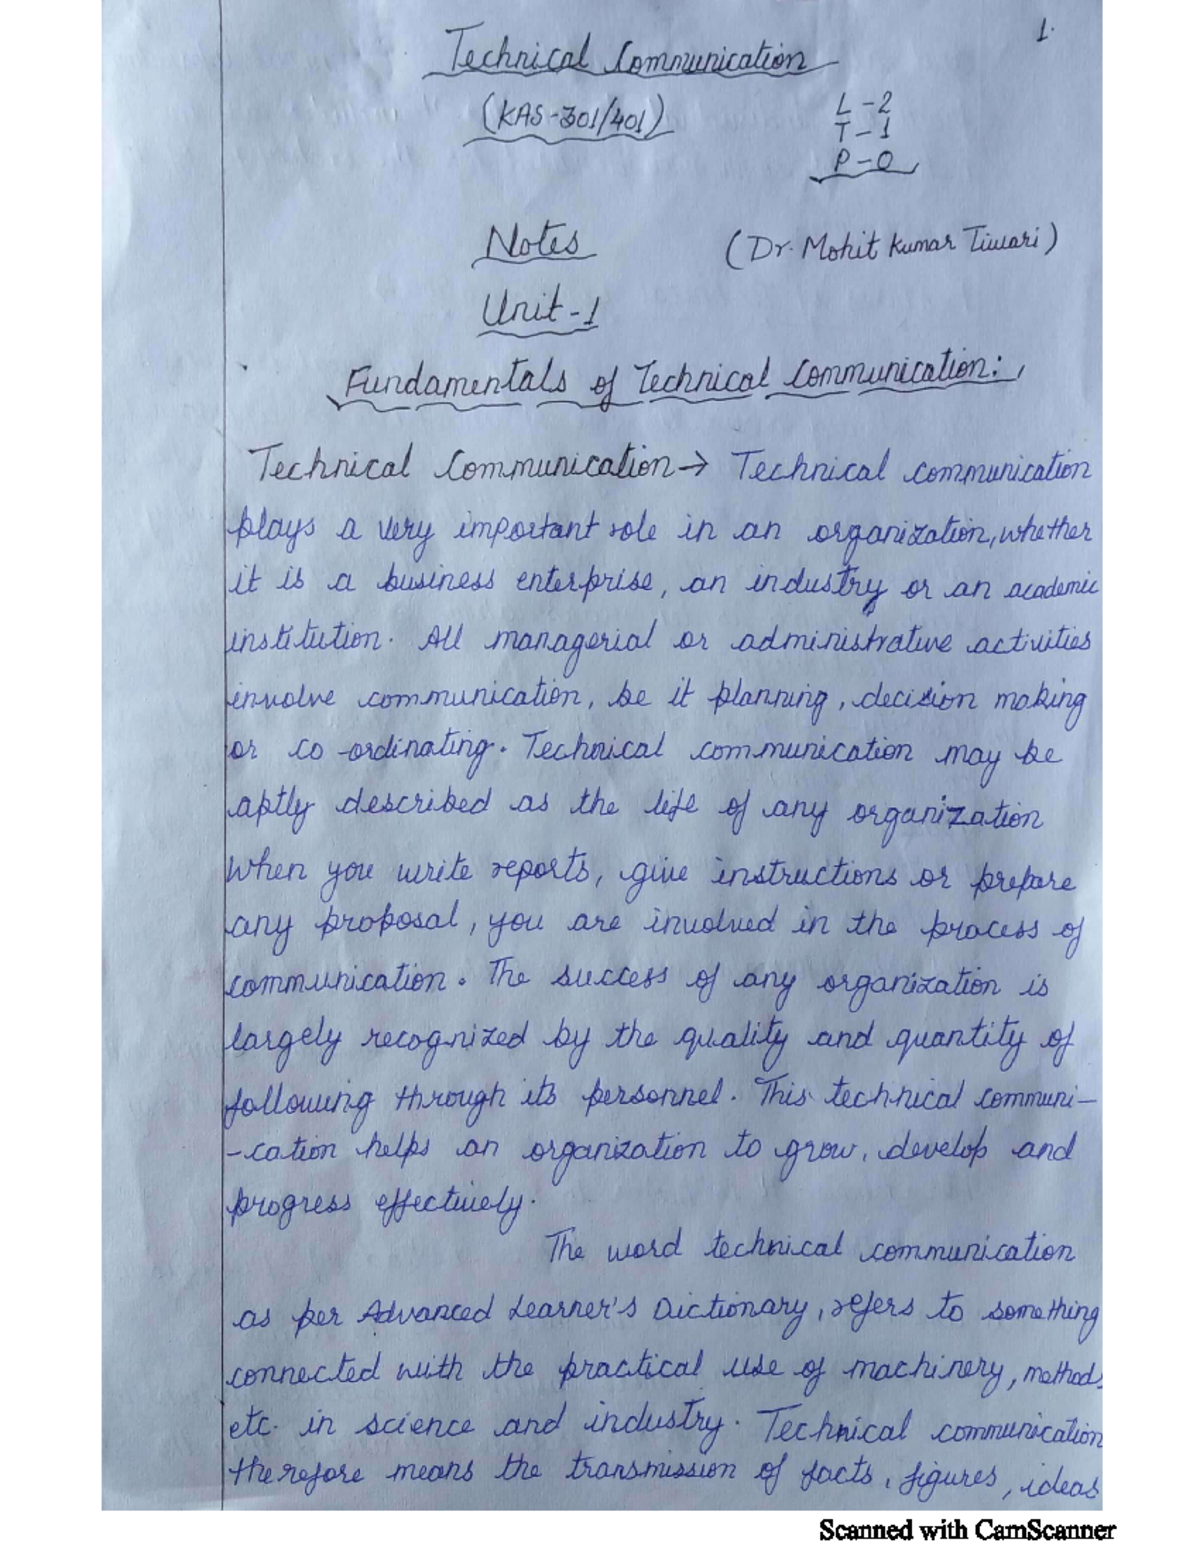 1.
Technical Communication
(KAS-301/401)
L-2
T-1
P-0
Notes
(Dr. Mohit Kumar Tiwari)
Unit-1
Fundamentals of Technical Communication:
Technical Communication→ Technical communication
plays a very important role in an organization, whether
it is a business enterprise, an industry or an academic
institution. All managerial or administrative activities
involve communication, be it planning, decision making
or co-ordinating. Technical communication may be
aptly described as the life of any organization
When you write reports, give instructions or prepare
any proposal, you are involved in the process of
communication. The success of any organization is
largely recognized by the quality and quantity of
following through its personnel. This technical communi-
-cation helps an organization to grow, develop and
progress effectively.
The word technical communication
as per Advanced Learner's Dictionary, refers to something
connected with the practical use of machinery, methods
etc. in science and industry. Technical communication
therefore means the transmission of facts, figures, ideas
Scanned with CamScanner